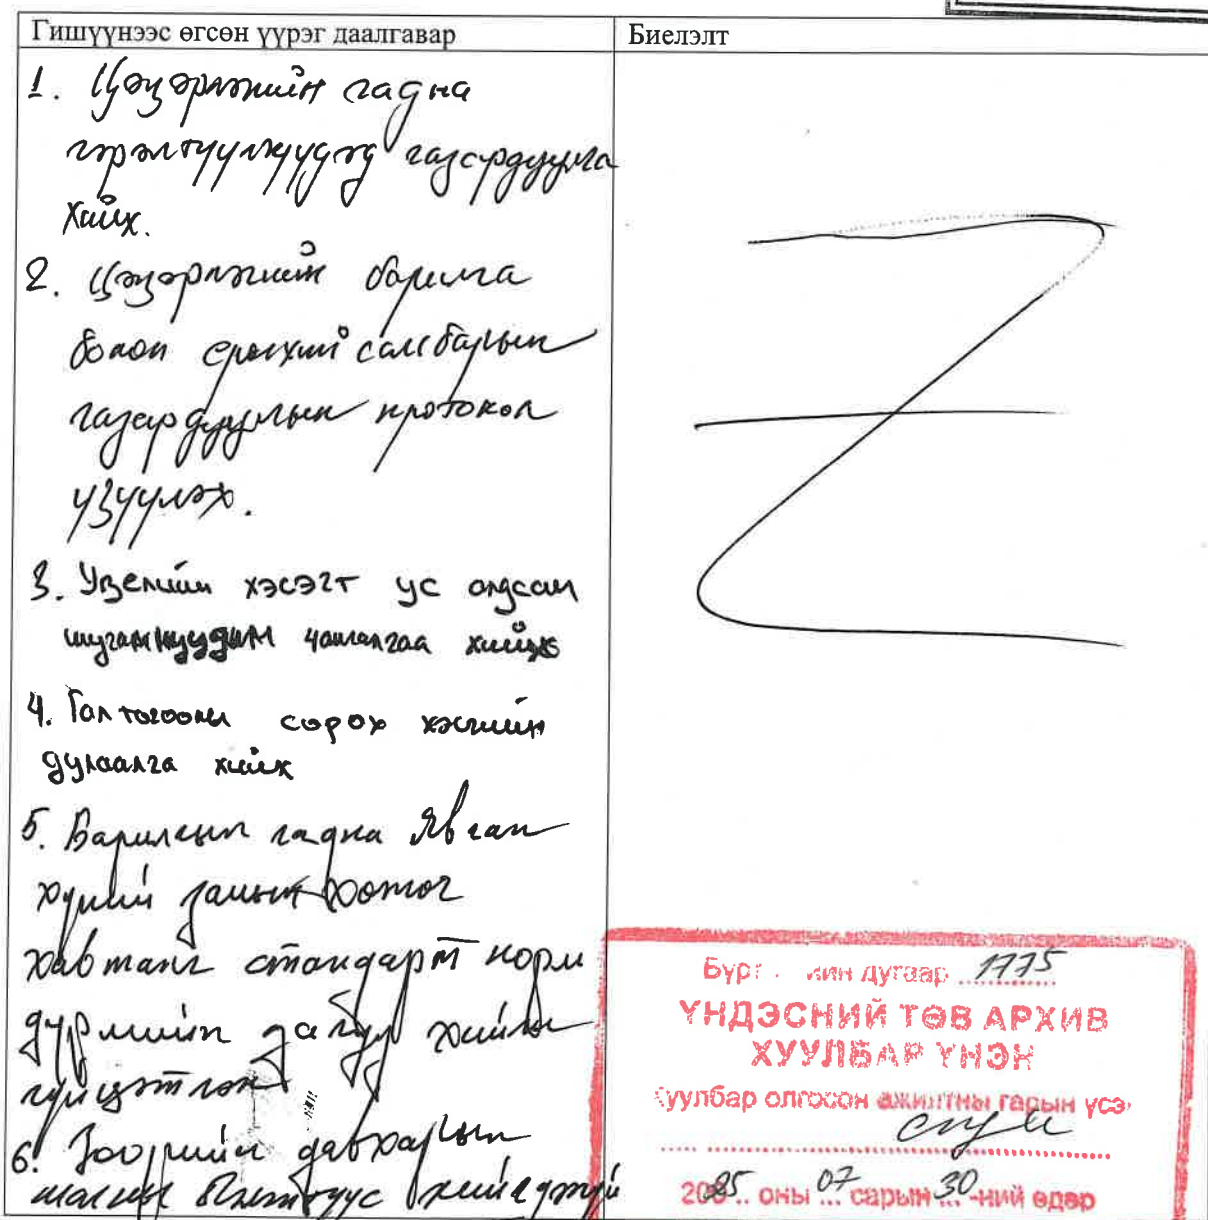 Гишүүнээс өгсөн үүрэг даалгавар
Биелэлт
1. Цэцэрлэгийн гадна
гэрэлтүүлгүүдэд газардуулга
хийх.
2. Цэцэрлэгийн барилга
болон ерөнхий самбарын
газардуулгын протокол
үзүүлэх.
3. Узелийн хэсэгт ус алдсан
шугамнуудын чамлалгаа хийх
4. Гал тогооны сорох хэсгийн
дулаалга хийх
5. Барилгын гадна явган
хүний замын хотгог
хавтанг стандарт норм
дүрмийн дагуу хийж
гүйцэтгэх
6. Зоорийн давхарын
шалны хийгдээгүй
Бүрт дугаар 1775
ҮНДЭСНИЙ ТӨВ АРХИВ
ХУУЛБАР ҮНЭН
уулбар олгосон ажилтны гарын үсэ
2025 оны 07 сарын 30-ний өдөр